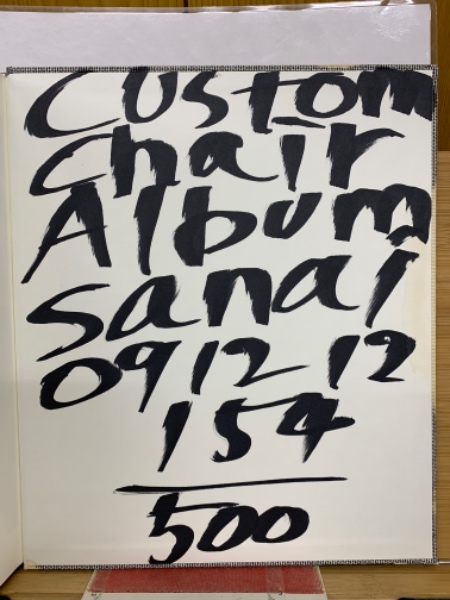 Custom
Chair
Album
sanai
09 12 12
154
500